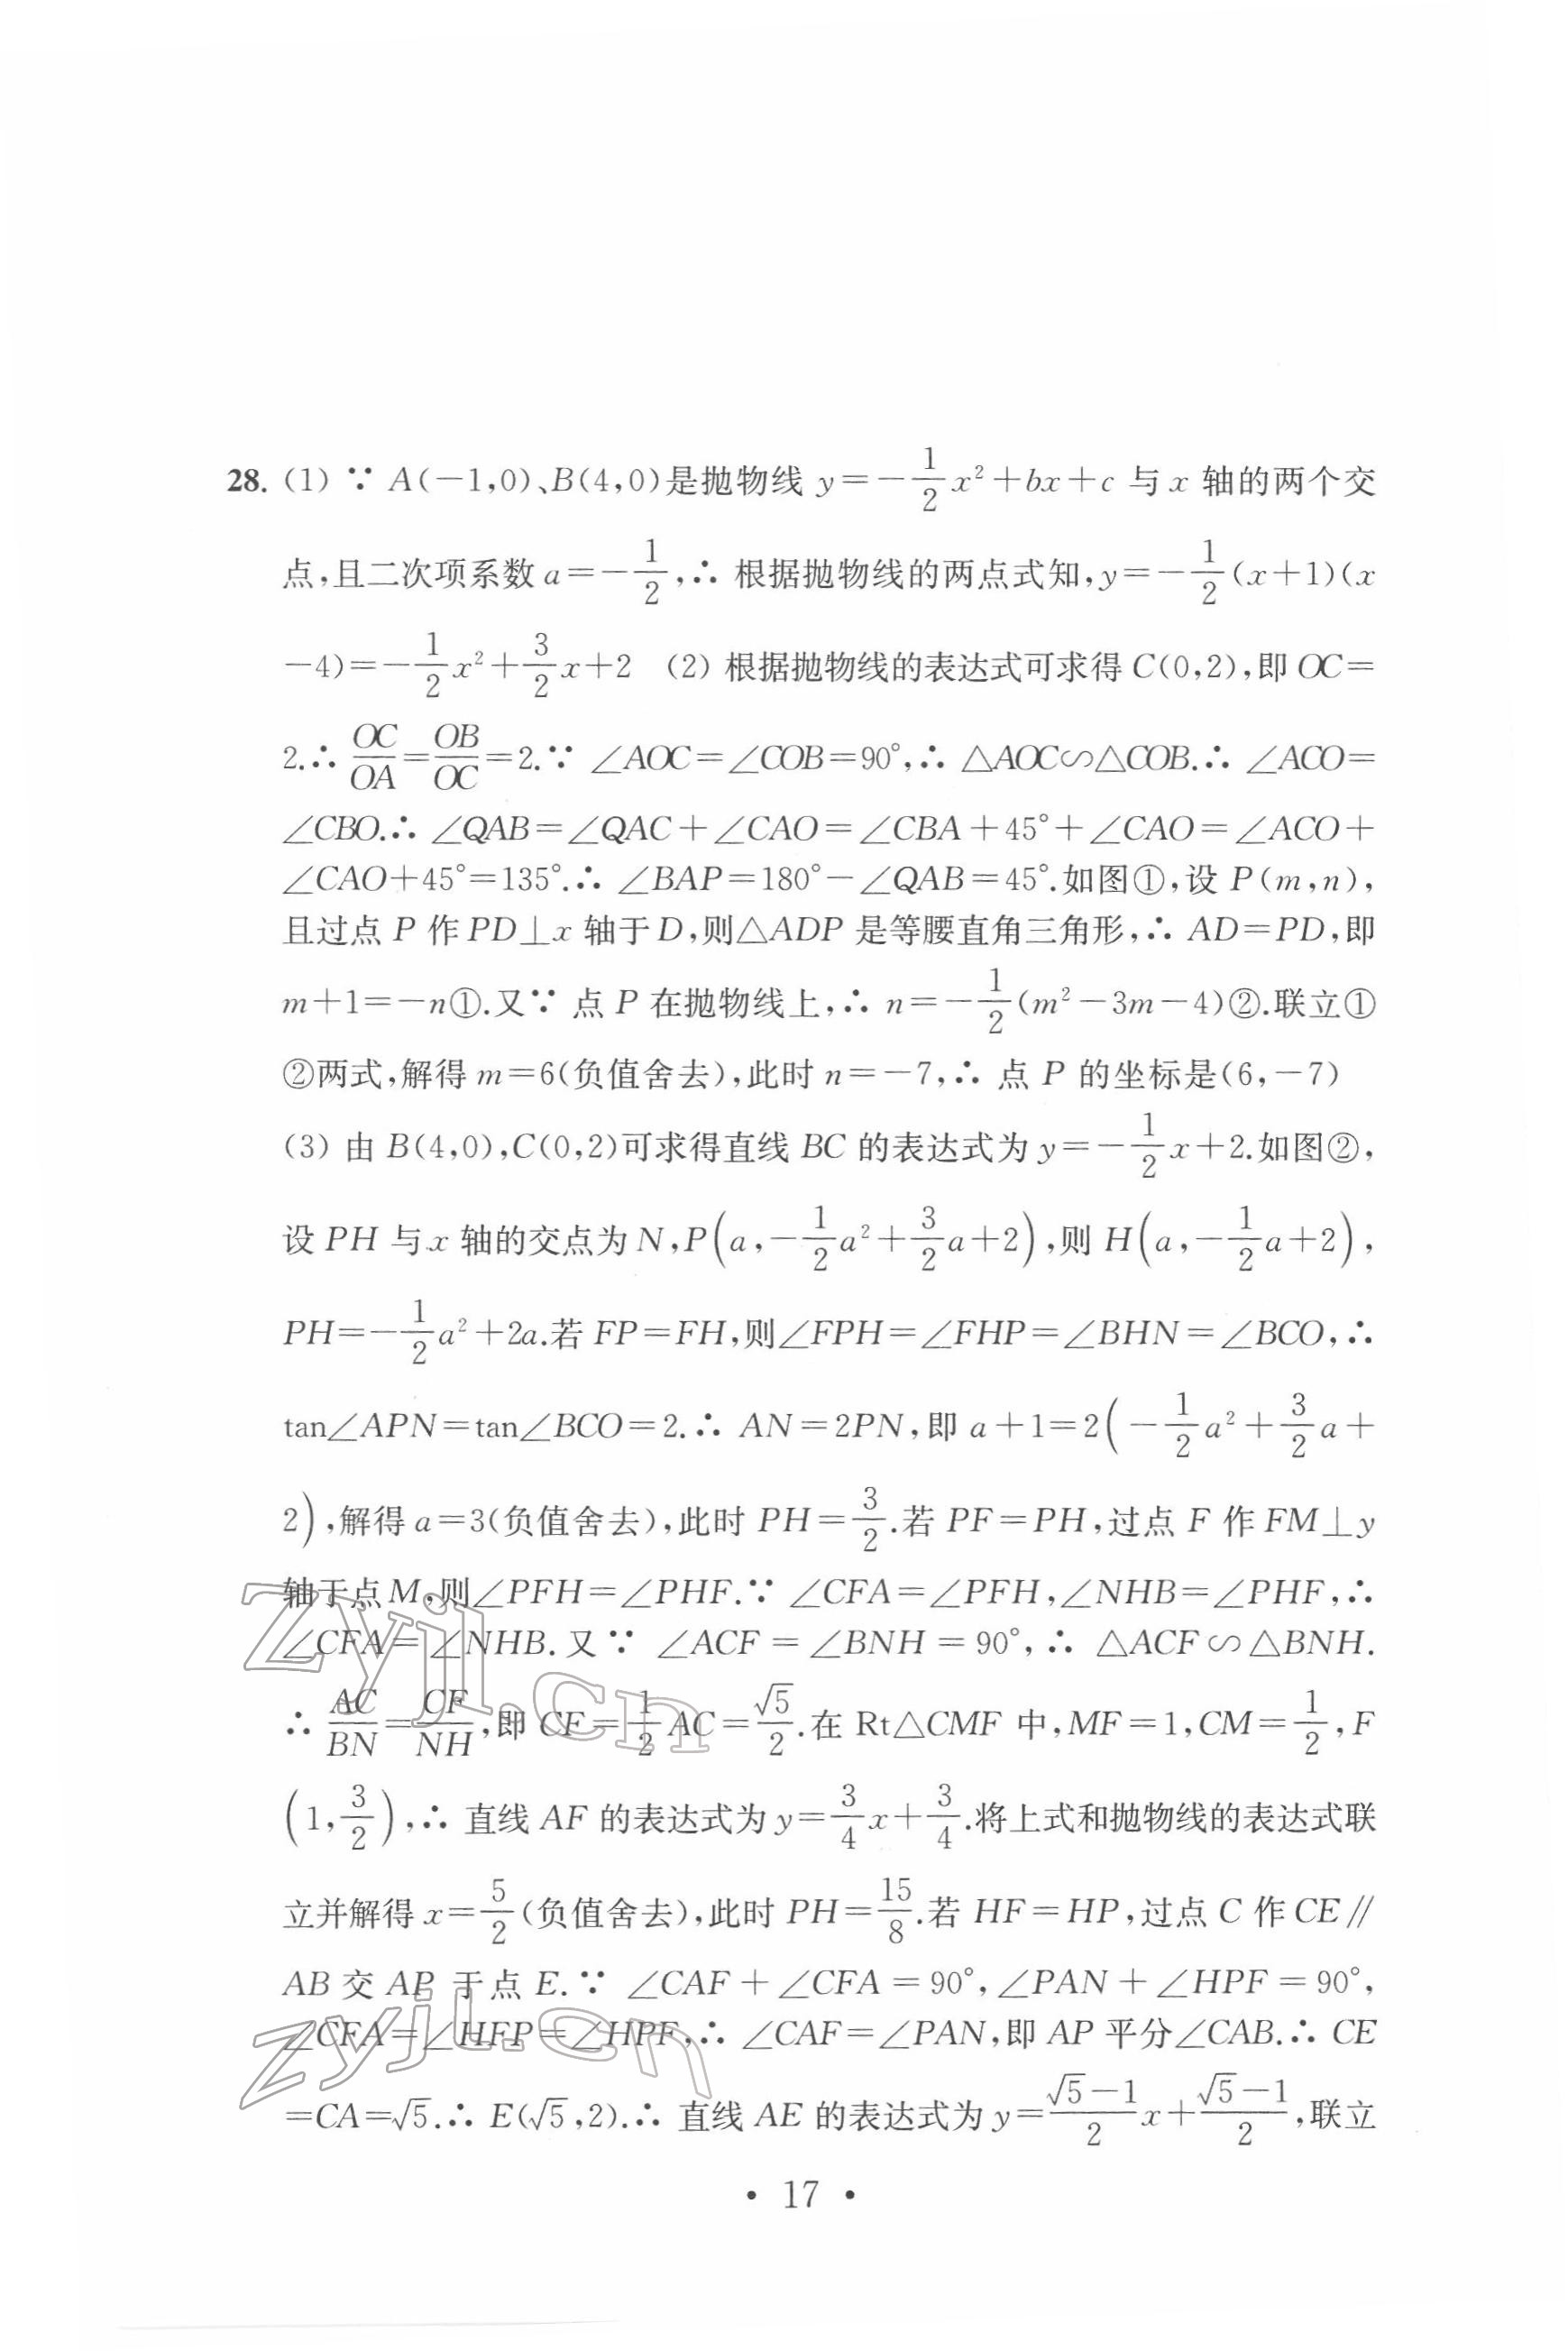 28. (1) ∵ A(−1,0)、B(4,0)是抛物线 y=−1/2x²+bx+c 与 x 轴的两个交
点,且二次项系数 a=−1/2,∴ 根据抛物线的两点式知,y=−1/2(x+1)(x
−4)=−1/2x²+3/2x+2 (2) 根据抛物线的表达式可求得 C(0,2),即 OC=
2.∴ OC/OA=OB/OC=2.∵ ∠AOC=∠COB=90°,∴ △AOC∽△COB.∴ ∠ACO=
∠CBO.∴ ∠QAB=∠QAC+∠CAO=∠CBA+45°+∠CAO=∠ACO+
∠CAO+45°=135°.∴ ∠BAP=180°−∠QAB=45°.如图①,设 P(m,n),
且过点 P 作 PD⊥x 轴于 D,则△ADP 是等腰直角三角形,∴ AD=PD,即
m+1=−n①.又∵ 点 P 在抛物线上,∴ n=−1/2(m²−3m−4)②.联立①
②两式,解得 m=6(负值舍去),此时 n=−7,∴ 点 P 的坐标是(6,−7)
(3) 由 B(4,0),C(0,2)可求得直线 BC 的表达式为 y=−1/2x+2.如图②,
设 PH 与 x 轴的交点为 N,P(a,−1/2a²+3/2a+2),则 H(a,−1/2a+2),
PH=−1/2a²+2a.若 FP=FH,则∠FPH=∠FHP=∠BHN=∠BCO,∴
tan∠APN=tan∠BCO=2.∴ AN=2PN,即 a+1=2(−1/2a²+3/2a+
2),解得 a=3(负值舍去),此时 PH=3/2.若 PF=PH,过点 F 作 FM⊥y
轴于点 M,则∠PFH=∠PHF.∵ ∠CFA=∠PFH,∠NHB=∠PHF,∴
∠CFA=∠NHB.又∵ ∠ACF=∠BNH=90°,∴ △ACF∽△BNH.
∴ AC/BN=CF/NH,即 CF=1/2AC=√5/2.在 Rt△CMF 中,MF=1,CM=1/2,F
(1,3/2),∴ 直线 AF 的表达式为 y=3/4x+3/4.将上式和抛物线的表达式联
立并解得 x=5/2(负值舍去),此时 PH=15/8.若 HF=HP,过点 C 作 CE∥
AB 交 AP 于点 E.∵ ∠CAF+∠CFA=90°,∠PAN+∠HPF=90°,
∠CFA=∠HFP=∠HPF,∴ ∠CAF=∠PAN,即 AP 平分∠CAB.∴ CE
=CA=√5.∴ E(√5,2).∴ 直线 AE 的表达式为 y=(√5−1)/2x+(√5−1)/2,联立
• 17 •
zyjl.cn
zyjl.cn